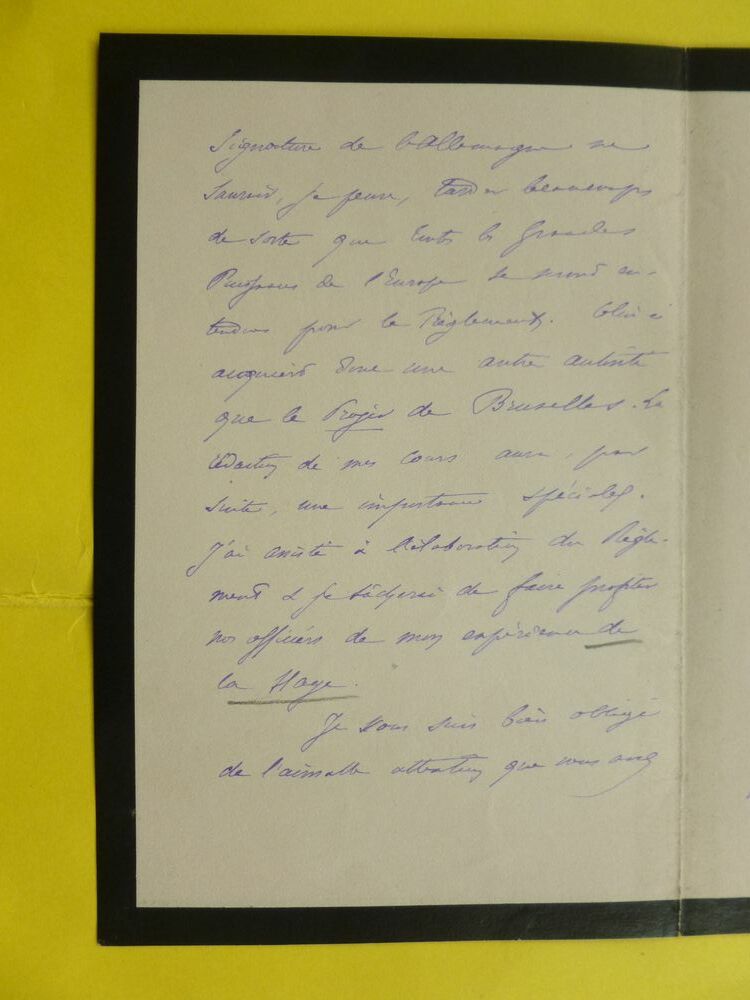 Signature de l'Allemagne ne
saurait, je pense, tarder beaucoup
de sorte que touts les grandes
Puissances de l'Europe se seront en-
tendues pour le Règlement. Celui ci
acquiert donc une autre autorité
que le Projet de Bruxelles. La
rédaction de mes cours aura, par
suite, une importance spéciale.
J'ai assisté à l'élaboration du Règle-
ment & je tâcherai de faire profiter
nos officiers de mon expérience de
la Haye.
Je vous suis bien obligé
de l'aimable attention que vous avez